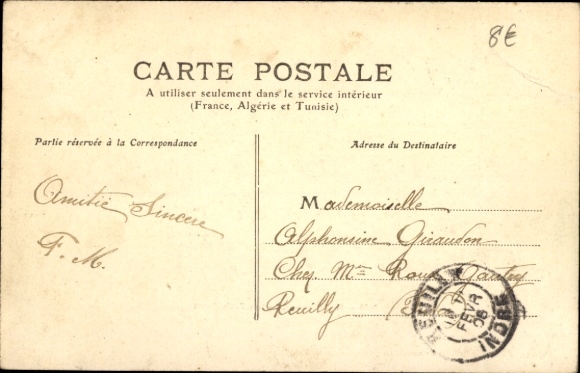 8€
CARTE POSTALE
A utiliser seulement dans le service intérieur
(France, Algérie et Tunisie)
Partie réservée à la Correspondance
Adresse du Destinataire
Amitié Sincère
F. M.
Mademoiselle
Alphonsine Giraudon
Chez Mme
Reuilly
REUILLY
FEVR
INDRE